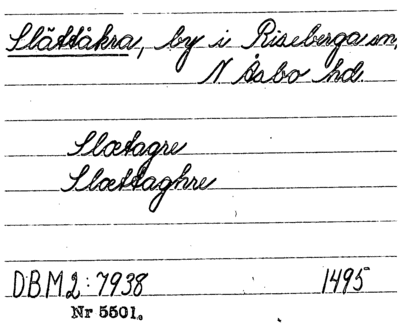 Slättåkra, by i Riseberga sn,
N Åsbo hd.
Slætagre
Slættaghre
DBM2:7938 1495
Nr 5501.